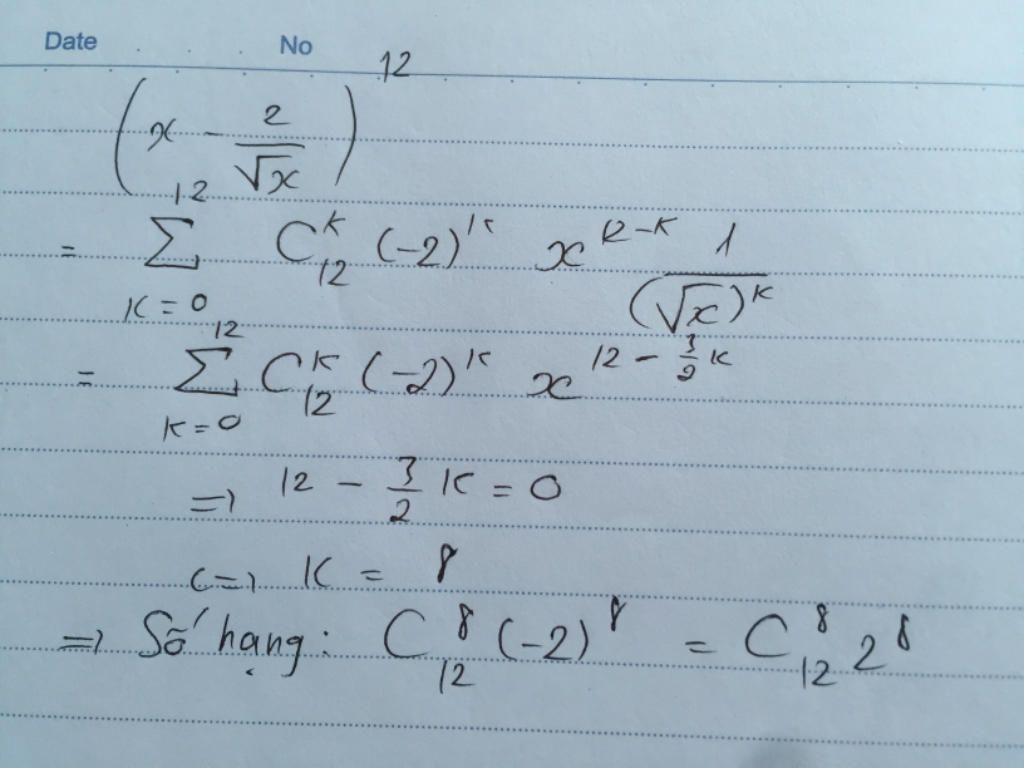 Date No
(x - 2/√x)^12
= ∑_{K=0}^{12} C_{12}^{K} (-2)^K x^{12-K} 1/(√x)^K
= ∑_{K=0}^{12} C_{12}^{K} (-2)^K x^{12 - 3/2 K}
=> 12 - 3/2 K = 0
<=> K = 8
=> Số hạng: C_{12}^{8} (-2)^8 = C_{12}^{8} 2^8